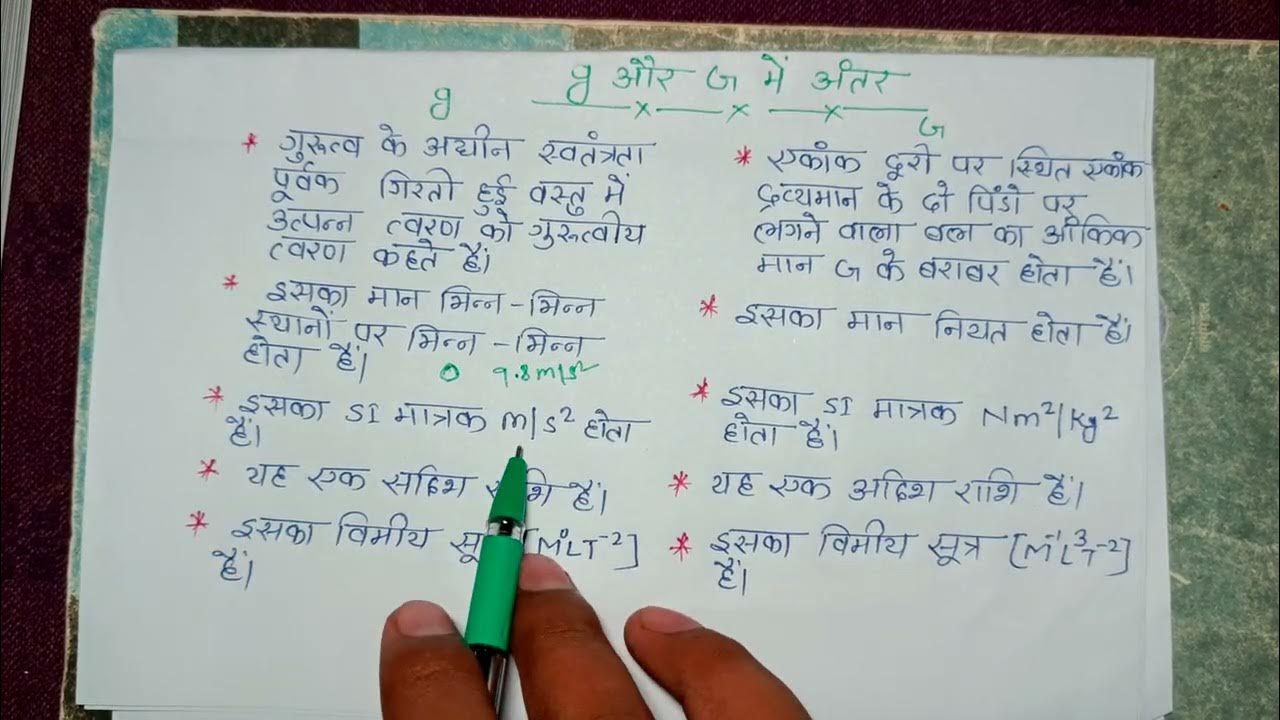 g और G में अंतर
g
गुरुत्व के अधीन स्वतंत्रता
पूर्वक गिरती हुई वस्तु में
उत्पन्न त्वरण को गुरुत्वीय
त्वरण कहते हैं।
* इसका मान भिन्न-भिन्न
स्थानों पर भिन्न-भिन्न
होता हैं।
0 9.8m/s²
* इसका SI मात्रक m/s² होता
हैं।
* यह एक सदिश हैं।
* इसका विमीय [M⁰LT⁻²]
हैं।
G
* एकांक दूरी पर स्थित एकांक
द्रव्यमान के दो पिंडो पर
लगने वाला बल का आंकिक
मान G के बराबर होता हैं।
* इसका मान नियत होता हैं।
* इसका SI मात्रक Nm²/Kg²
होता हैं।
* यह एक अदिश राशि हैं।
* इसका विमीय सूत्र [M⁻¹L³T⁻²]
हैं।